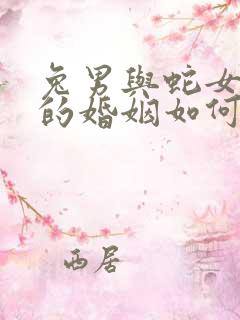 兔男與蛇女
的婚姻如何
西居